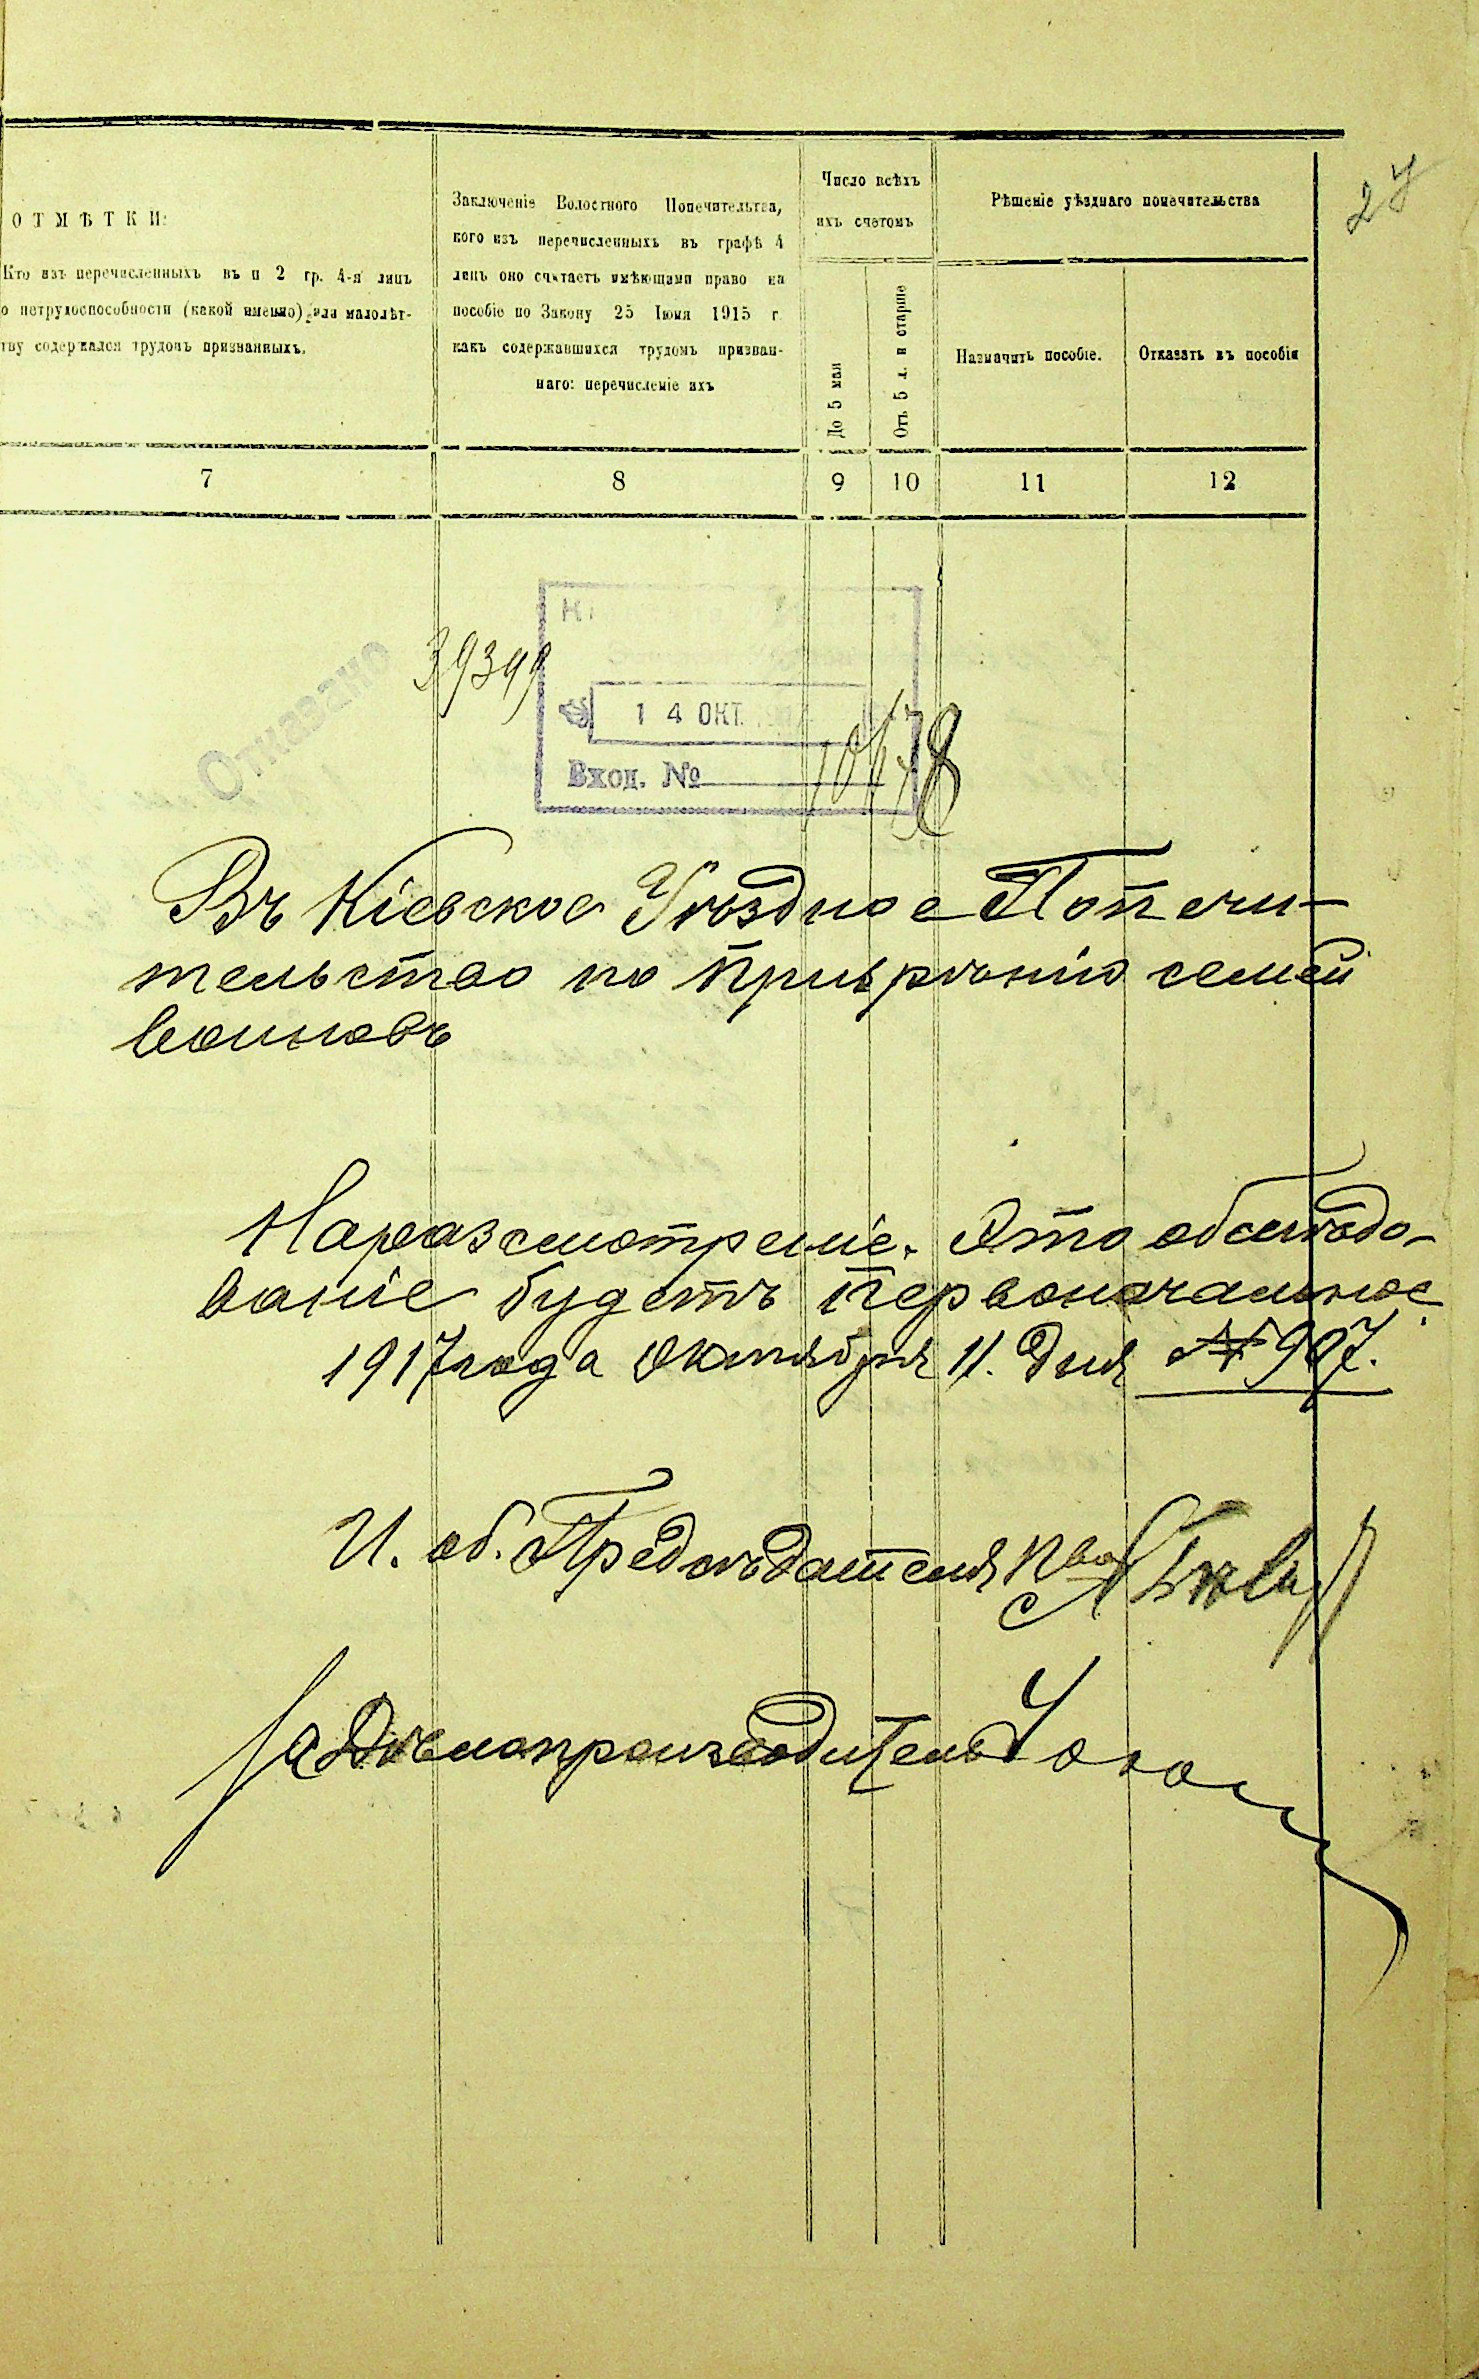 27
ОТМѢТКИ:
Кто изъ перечисленныхъ въ п 2 гр. 4-я лицъ
о нетрудоспособности (какой именно), или малолѣт-
тву содержался трудомъ призванныхъ.
Заключеніе Волостного Попечительтва,
кого изъ перечисленныхъ въ графѣ 4
лицъ оно считаетъ имѣющими право на
пособіе по Закону 25 Іюня 1915 г.
какъ содержавшихся трудомъ призван-
наго: перечисленіе ихъ
Число всѣхъ
ихъ счетомъ
До 5 мая
Отъ 5 л. и старше
Рѣшеніе уѣзднаго попечительства
Назначить пособіе.
Отказать въ пособіи
7 8 9 10 11 12
Отказано
39349
14 ОКТ.
Вход. №
Въ Кіевское Уѣздное Попечи-
тельство по призрѣнію семей
воиновъ
На разсмотреніе. Это обслѣдо-
ваніе будетъ первоначальное
1917 года Октября 11. дня № 907.
И. об. Предсѣдателя
За Дѣлопроизводитель